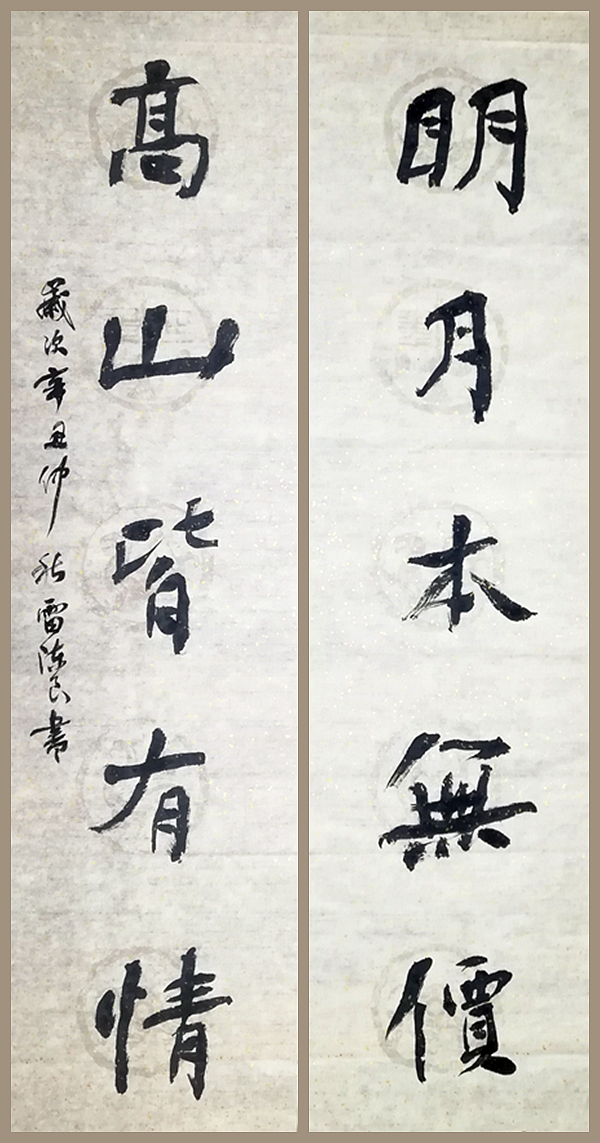 明月本無價
高山皆有情
歲次辛丑仲秋雷陳良書